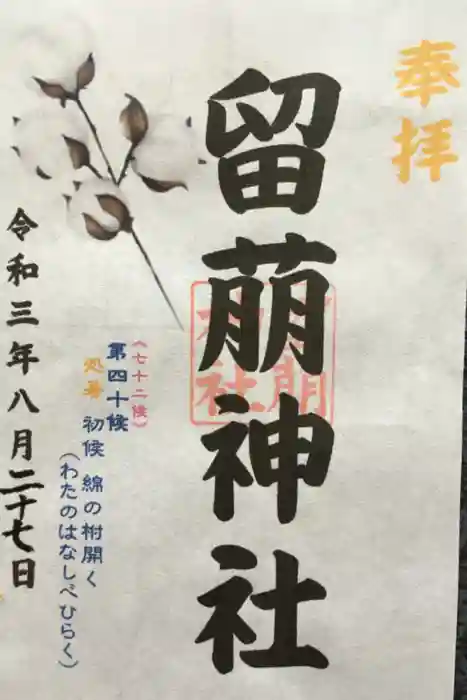 奉拝
留萌神社
留萌神社
(七十二候)
第四十候
処暑 初候 綿の柎開く
(わたのはなしべひらく)
令和三年八月二十七日